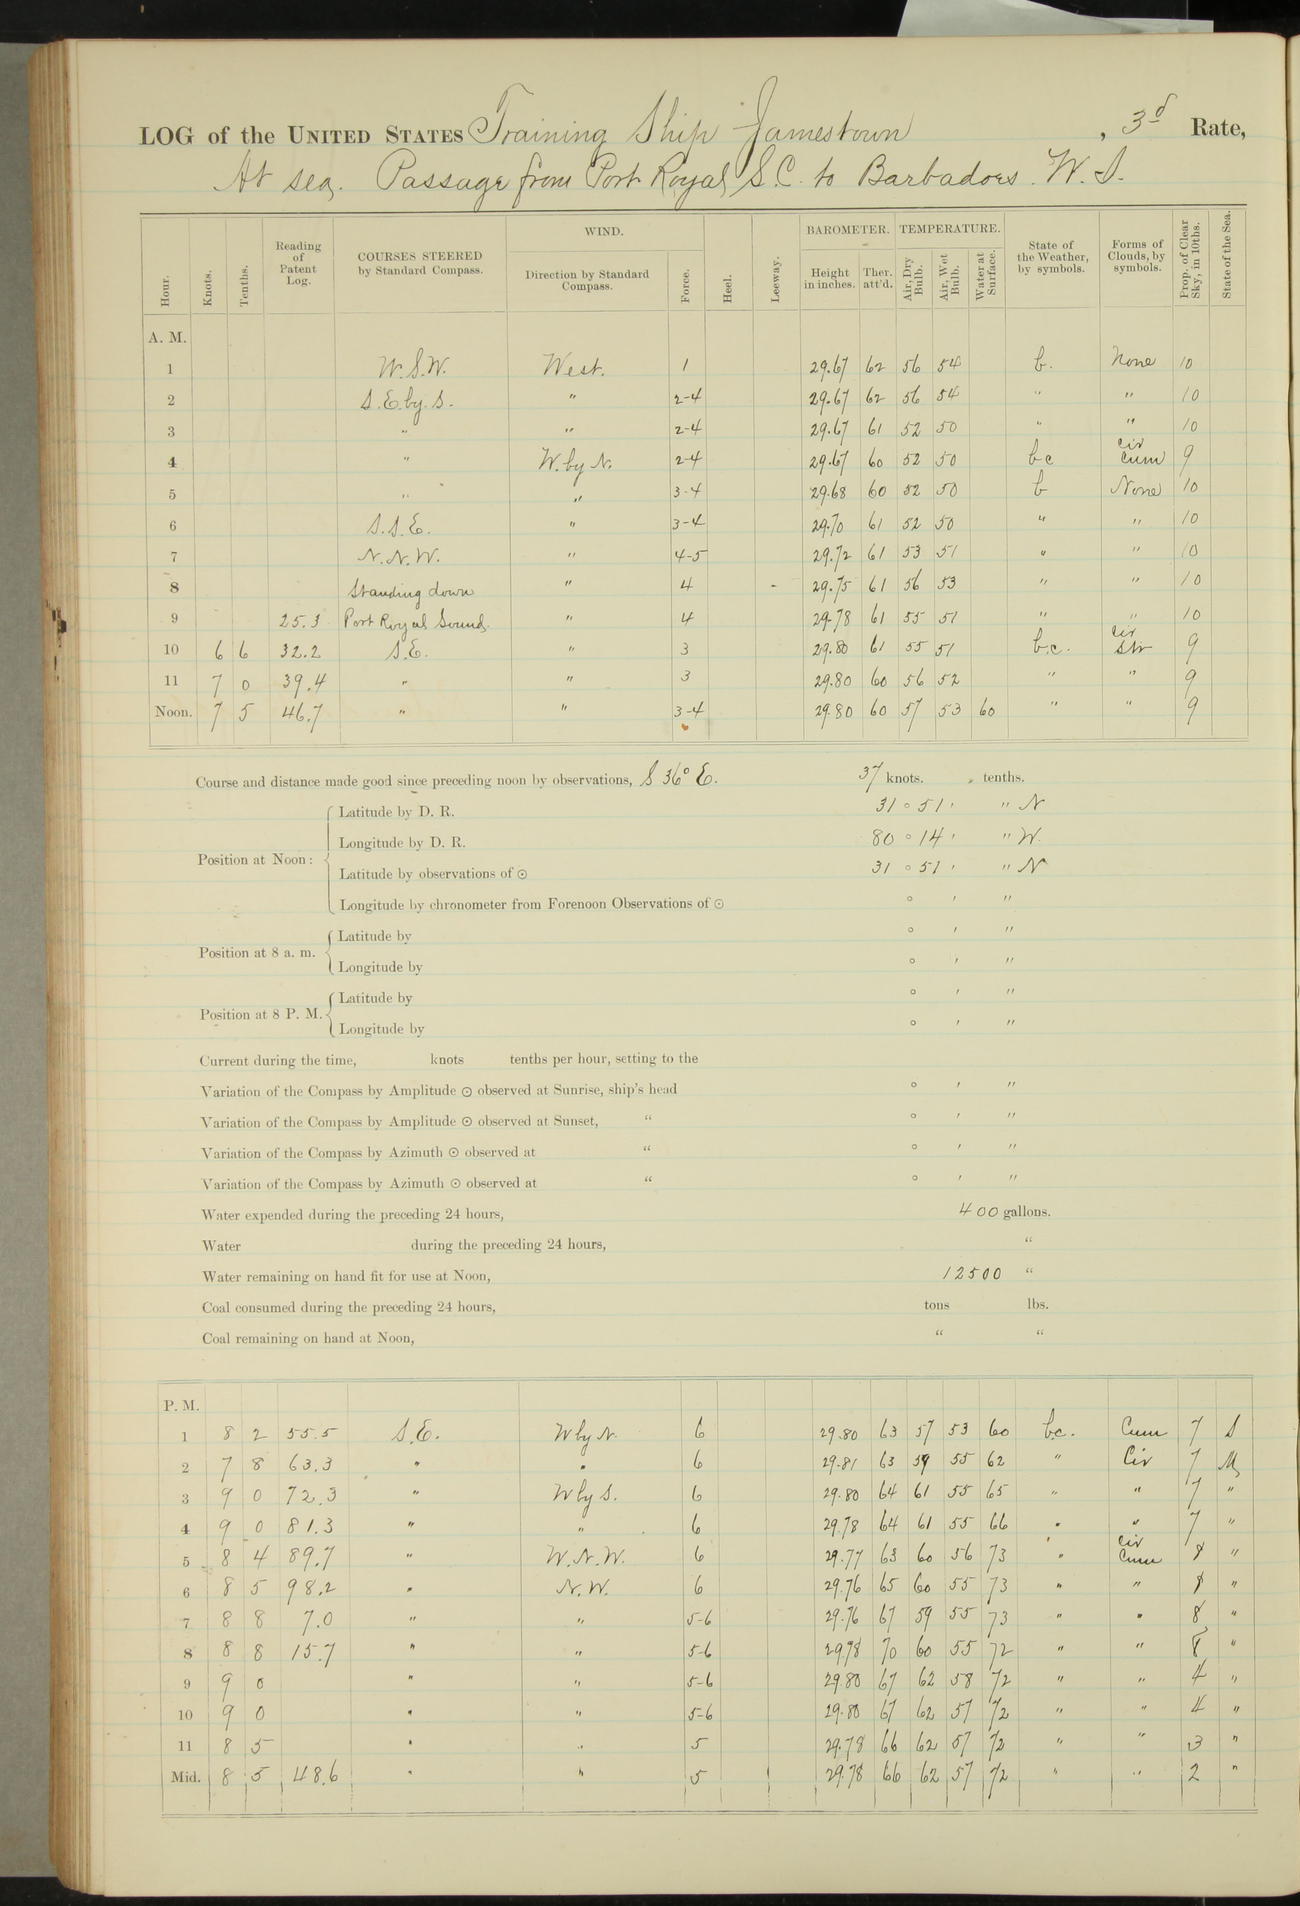 LOG of the UNITED STATES Training Ship Jamestown , 3d Rate,
At sea. Passage from Port Royal S.C. to Barbadoes. W.I.
Hour. Knots. Tenths. Reading of Patent Log. COURSES STEERED by Standard Compass. WIND. Direction by Standard Compass. Force. Heel. Leeway. BAROMETER. Height in inches. Ther. att'd. TEMPERATURE. Air, Dry Bulb. Air, Wet Bulb. Water at Surface. State of the Weather, by symbols. Forms of Clouds, by symbols. Prop. of Clear Sky, in 10ths. State of the Sea.
A. M.
1 W.S.W. West. 1 29.67 62 56 54 b. None 10
2 S.E. by S. " 2-4 29.67 62 56 54 " " 10
3 " " 2-4 29.67 61 52 50 " " 10
4 " W. by N. 2-4 29.67 60 52 50 bc Cir Cum 9
5 " " 3-4 29.68 60 52 50 b None 10
6 S.S.E. " 3-4 29.70 61 52 50 " " 10
7 N.N.W. " 4-5 29.72 61 53 51 " " 10
8 Standing down " 4 - 29.75 61 56 53 " " 10
9 25.3 Port Royal Sound. " 4 29.78 61 55 51 " " 10
10 6 6 32.2 S.E. " 3 29.80 61 55 51 b.c. Cir Str 9
11 7 0 39.4 " " 3 29.80 60 56 52 " " 9
Noon. 7 5 46.7 " " 3-4 29.80 60 57 53 60 " " 9
Course and distance made good since preceding noon by observations, S 36° E. 37 knots. " tenths.
Position at Noon:
Latitude by D. R. 31 ° 51 ' " N
Longitude by D. R. 80 ° 14 ' " W.
Latitude by observations of ⊙ 31 ° 51 ' " N
Longitude by chronometer from Forenoon Observations of ⊙ ° ' "
Position at 8 a. m.
Latitude by ° ' "
Longitude by ° ' "
Position at 8 P. M.
Latitude by ° ' "
Longitude by ° ' "
Current during the time, knots tenths per hour, setting to the
Variation of the Compass by Amplitude ⊙ observed at Sunrise, ship's head ° ' "
Variation of the Compass by Amplitude ⊙ observed at Sunset, " ° ' "
Variation of the Compass by Azimuth ⊙ observed at " ° ' "
Variation of the Compass by Azimuth ⊙ observed at " ° ' "
Water expended during the preceding 24 hours, 400 gallons.
Water during the preceding 24 hours, "
Water remaining on hand fit for use at Noon, 12500 "
Coal consumed during the preceding 24 hours, tons lbs.
Coal remaining on hand at Noon, " "
P. M.
1 8 2 55.5 S.E. W by N. 6 29.80 63 57 53 60 b.c. Cum 7 S
2 7 8 63.3 " " 6 29.81 63 59 55 62 " Cir 7 M
3 9 0 72.3 " W by S. 6 29.80 64 61 55 65 " " 7 "
4 9 0 81.3 " " 6 29.78 64 61 55 66 " " 7 "
5 8 4 89.7 " W.N.W. 6 29.77 63 60 56 73 " Cir Cum 8 "
6 8 5 98.2 " N.W. 6 29.76 65 60 55 73 " " 8 "
7 8 8 7.0 " " 5-6 29.76 67 59 55 73 " " 8 "
8 8 8 15.7 " " 5-6 29.78 70 60 55 72 " " 8 "
9 9 0 " " 5-6 29.80 67 62 58 72 " " 4 "
10 9 0 " " 5-6 29.80 67 62 57 72 " " 4 "
11 8 5 " " 5 29.78 66 62 57 72 " " 3 "
Mid. 8 5 48.6 " " 5 29.78 66 62 57 72 " " 2 "